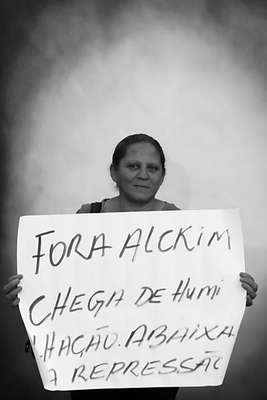 FORA ALCKIM
CHEGA DE HUMI
LHAÇÃO. ABAIXA
A REPRESSÃO